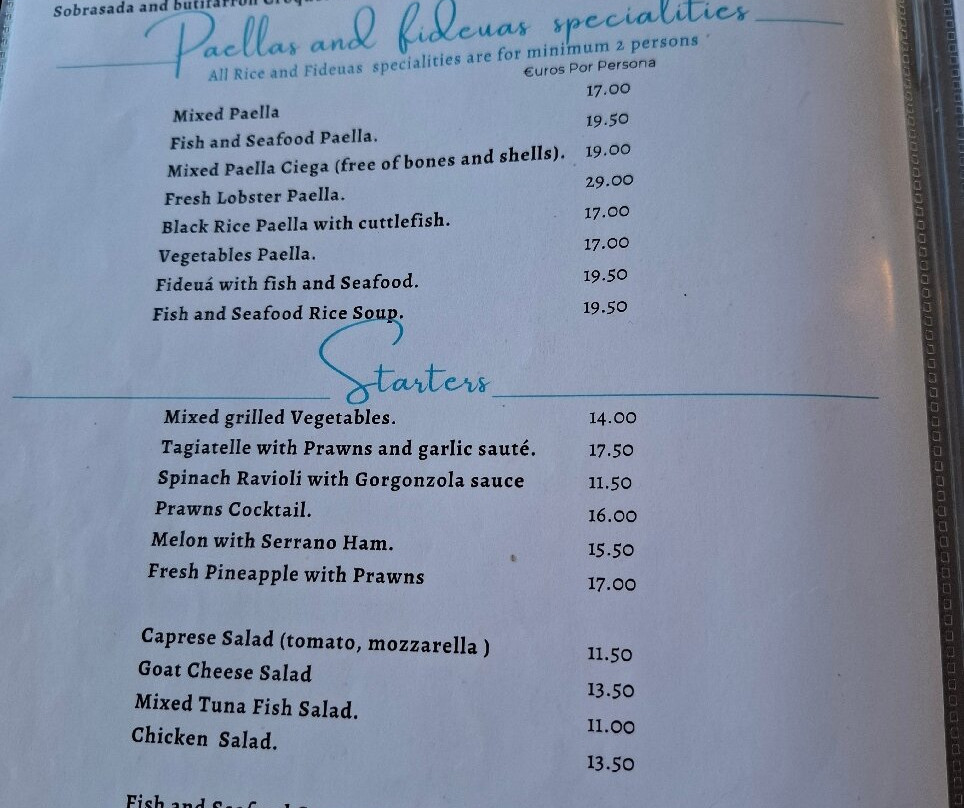 Sobrasada and butifarrón
Paellas and fideuas specialities
All Rice and Fideuas specialities are for minimum 2 persons
€uros Por Persona
Mixed Paella 17.00
Fish and Seafood Paella. 19.50
Mixed Paella Ciega (free of bones and shells). 19.00
Fresh Lobster Paella. 29.00
Black Rice Paella with cuttlefish. 17.00
Vegetables Paella. 17.00
Fideuá with fish and Seafood. 19.50
Fish and Seafood Rice Soup. 19.50
Starters
Mixed grilled Vegetables. 14.00
Tagiatelle with Prawns and garlic sauté. 17.50
Spinach Ravioli with Gorgonzola sauce 11.50
Prawns Cocktail. 16.00
Melon with Serrano Ham. 15.50
Fresh Pineapple with Prawns 17.00
Caprese Salad (tomato, mozzarella ) 11.50
Goat Cheese Salad 13.50
Mixed Tuna Fish Salad. 11.00
Chicken Salad. 13.50
Fish and